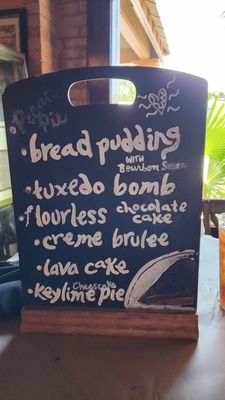 Pecan
pie
• bread pudding
WITH
Bourbon Sauce
• tuxedo bomb
• flourless chocolate
cake
• creme brulee
• lava cake
Cheesecake
• keylime pie